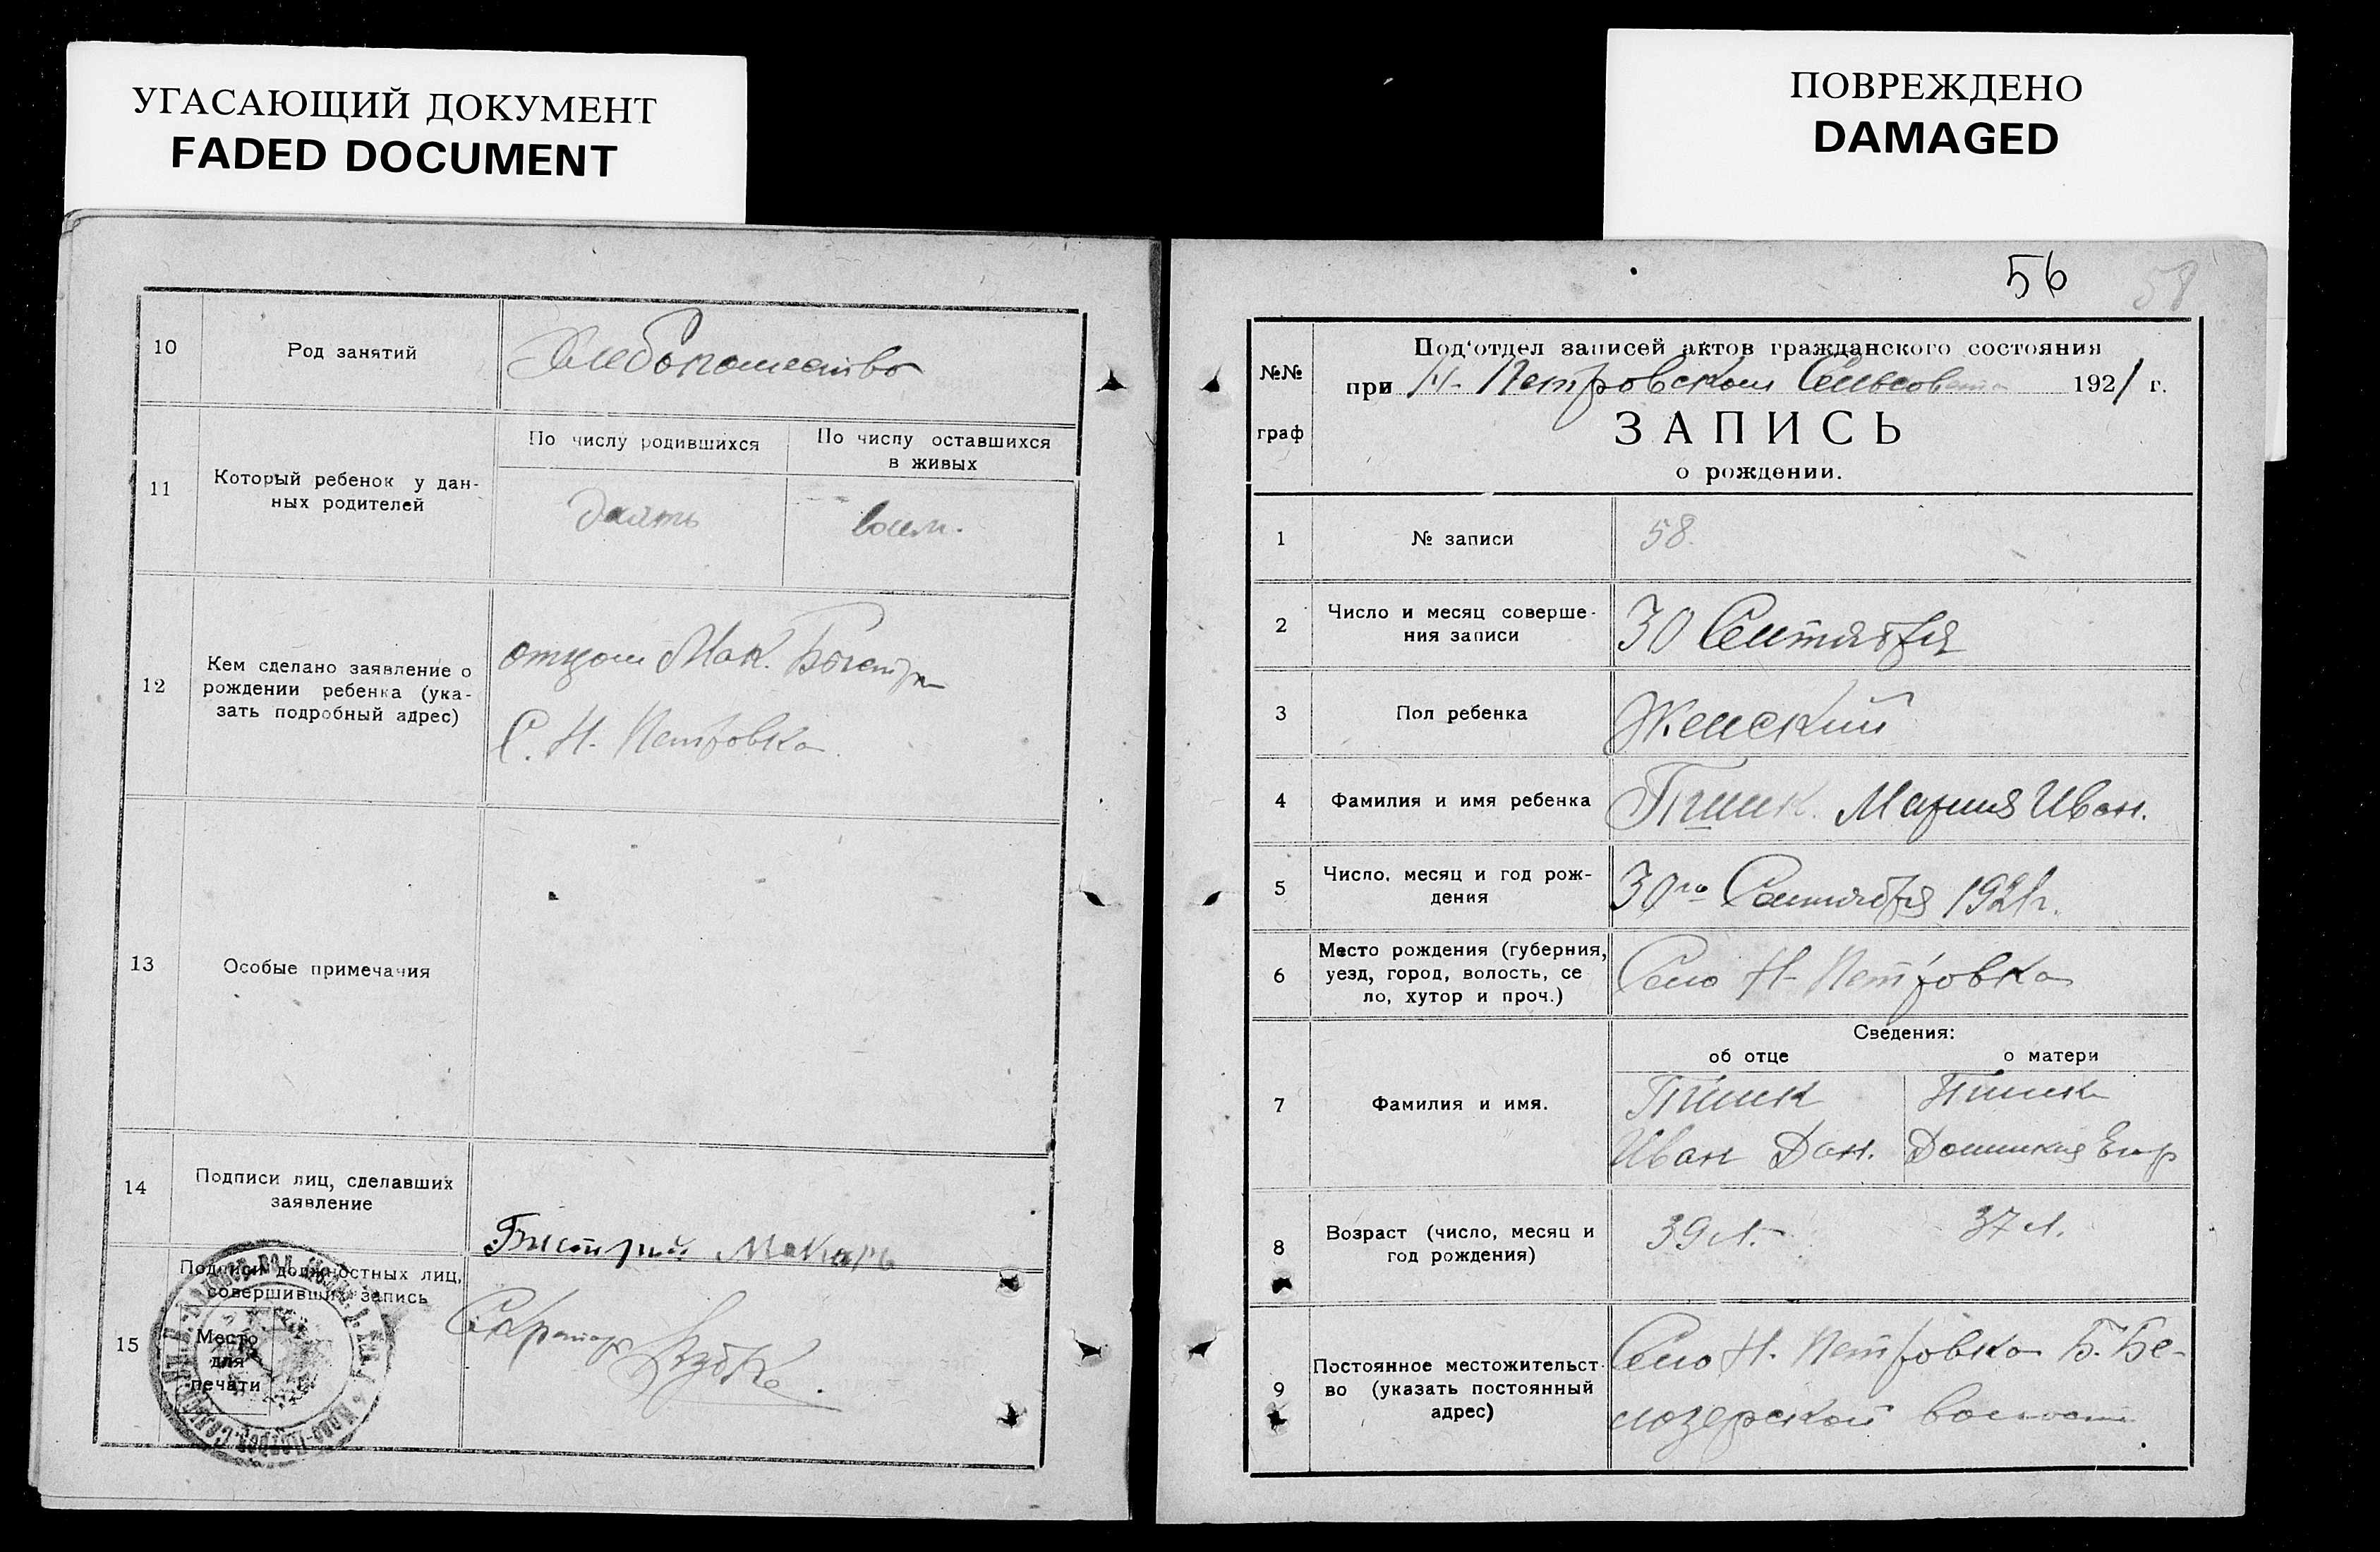 УГАСАЮЩИЙ ДОКУМЕНТ
FADED DOCUMENT
10
Род занятий
Хлебопашество
11
Который ребенок у дан-
ных родителей
По числу родившихся
По числу оставшихся
в живых
восем.
12
Кем сделано заявление о
рождении ребенка (ука-
зать подробный адрес)
отцом Мак.
С. Н. Петровка
13
Особые примечания
14
Подписи лиц, сделавших
заявление
Быстрий Макарь
15
Подписи должностных лиц,
совершивших запись
Место
для
печати
Секретарь
ПОВРЕЖДЕНО
DAMAGED
56
58
№№
граф
Под'отдел записей актов гражданского состояния
при Н- Петровском Сельсовете 1921 г.
ЗАПИСЬ
о рождении.
1
№ записи
58.
2
Число и месяц соверше-
ния записи
30 Сентября
3
Пол ребенка
Женский
4
Фамилия и имя ребенка
Мария Иван.
5
Число, месяц и год рож-
дения
30го Сентября 1921г.
6
Место рождения (губерния,
уезд, город, волость, се
ло, хутор и проч.)
Село Н- Петровка
Сведения:
об отце
о матери
7
Фамилия и имя.
Иван Дан.
Домникия Егор
8
Возраст (число, месяц и
год рождения)
39 л.
37 л.
9
Постоянное местожительст-
во (указать постоянный
адрес)
Село Н. Петровка Б. Бе-
лозерской волости